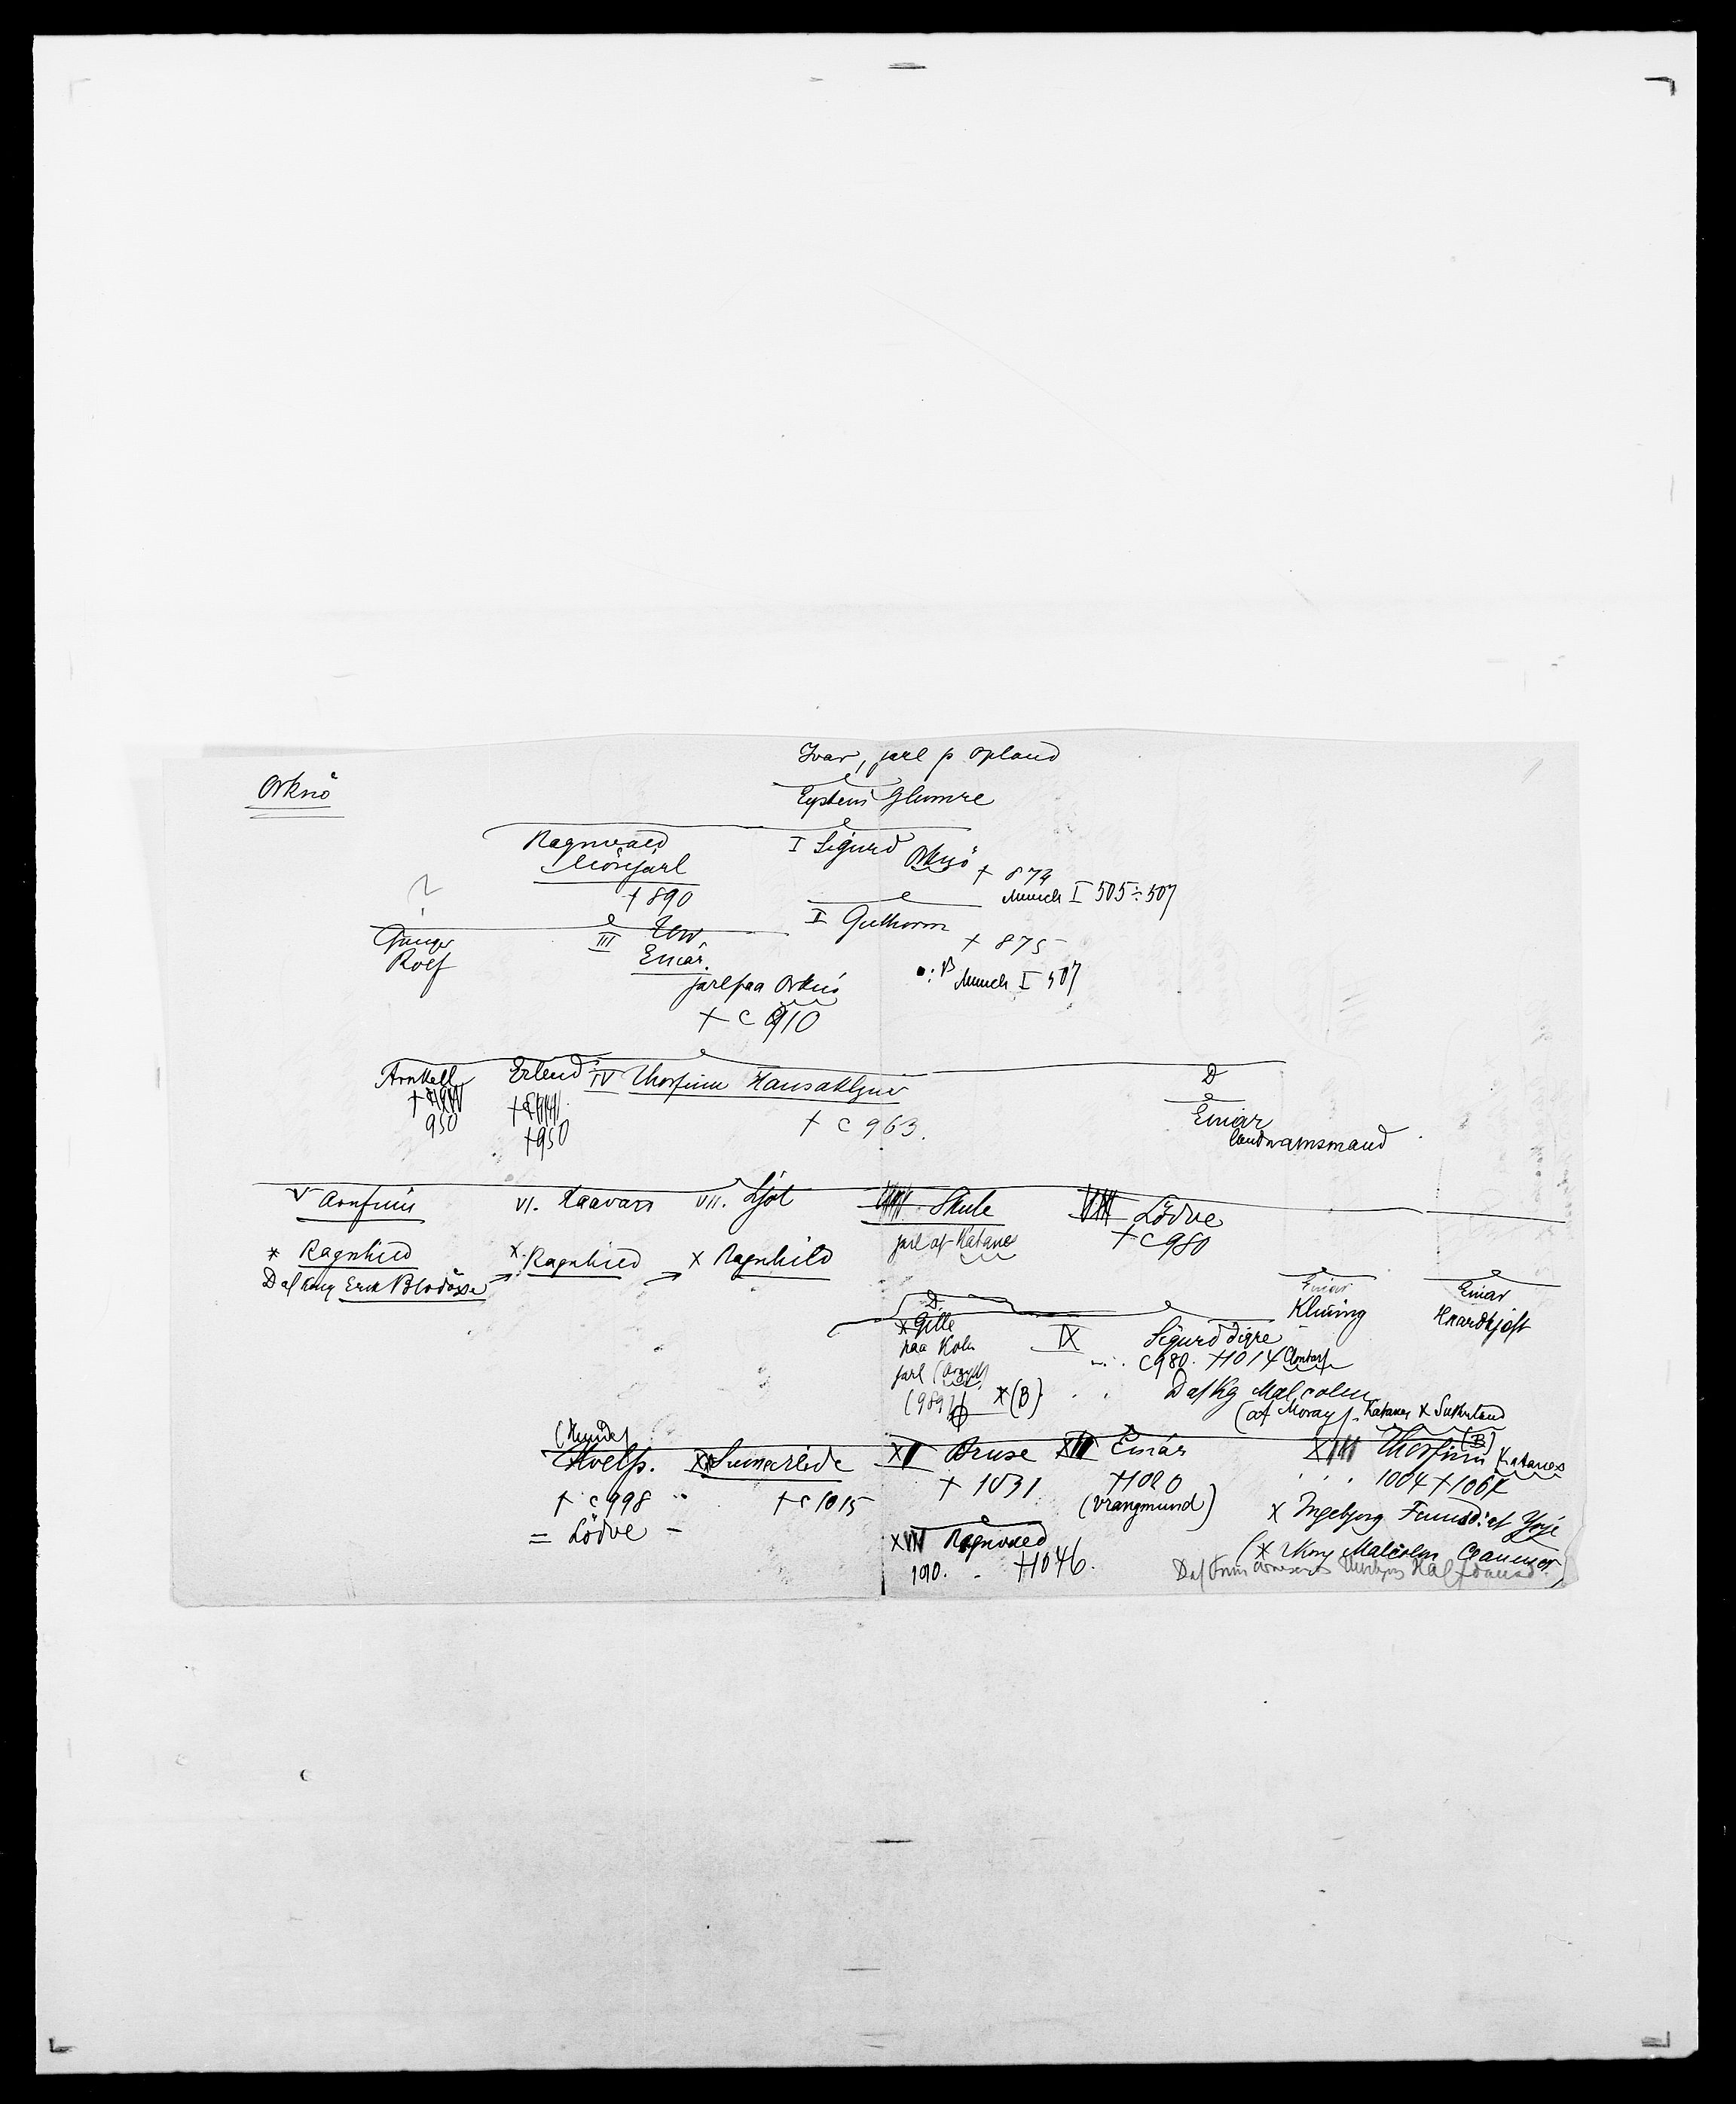 Orknö
Ivar, jarl p Opland
Eystein Glumre
Ragnvald
Mörejarl
† 890
I Sigurd Orknö † 874
Munch I 505÷507
?
Ganger
Rolf
III
Einar
jarl paa Orknö
† c 910
II Guthorm
† 875
Munch I 507
Arnkell
†
950
Erlend
†
†950
IV Thorfinn Hausakljuv
† c 963.
D
Einar
landnamsmand
V Arnfinn
* Ragnhild
D af Kong Erik Blodöxe
VI. Haavard
X. Ragnhild
VII. Ljot
X Ragnhild
Skule
jarl af Katanes
VIII Lödve
† c 980
D
* Gille
paa Koln
jarl (Argyll)
(989) *(B)
IX Sigurd digre
c 980. †1014 Clontarf
D af Kg Malcolm
(af Moray). Katanes X Sutherland
Einar
Klining
Einar
Haardkjöft
(Hunde)
Hvelp.
† c 998
= Lödve –
X Sumarlide
† c 1015
XI Bruse
† 1031
XII Einár
†1020
(vrangmund)
XIII Thorfinn (B) Katanes
1004 †1064
X Ingebjorg Finnsd. af Yrje
(X Kong Malcolm Canmor)
D af Finn Arnesens Halfdansd.
XIV Ragnvald
1010. - †1046.